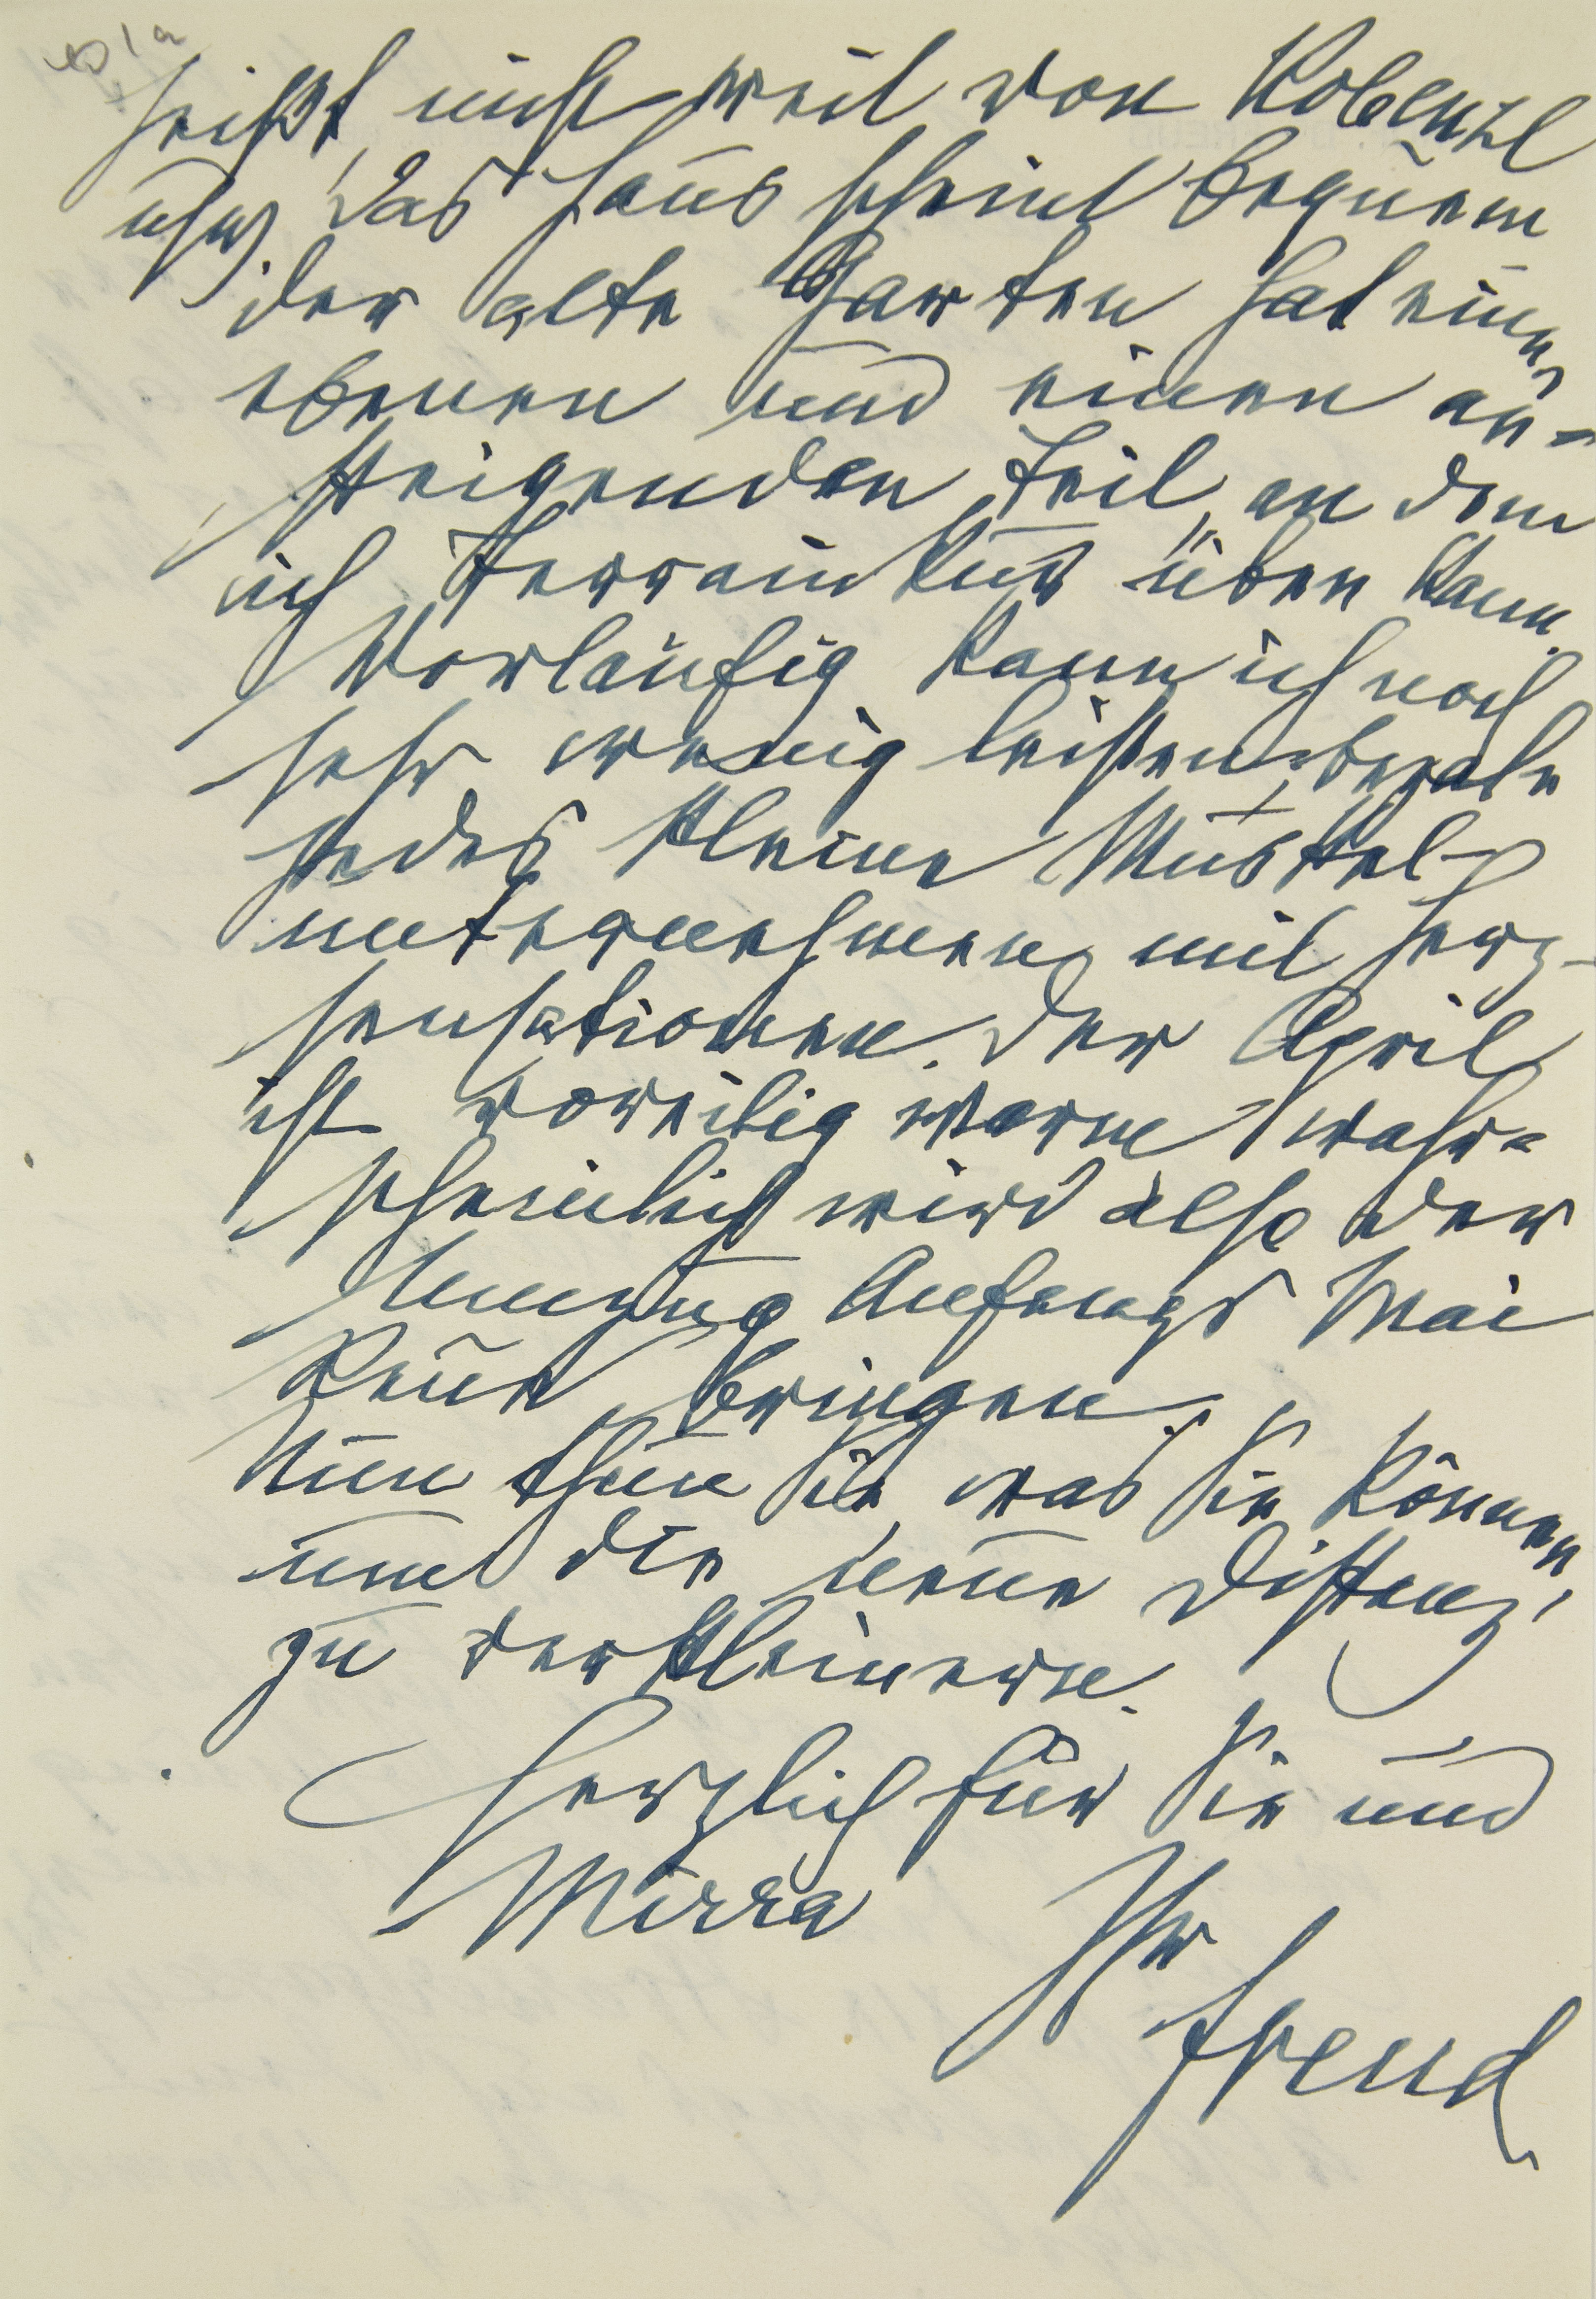 heißt, nicht weit von Kobenzl
usw. Das Haus scheint bequem
der alte Garten hat einen
ebenen und einen an-
steigenden Teil, an dem
ich Terrainkur üben kann.
Vorläufig kann ich noch
sehr wenig leisten, bezahle
jedes kleine Muskel-
unternehmen mit Herz-
sensationen. Der April
ist voreilig warm, wahr-
scheinlich wird also der
Umzug Anfangs Mai
Reue bringen.
Nun thun Sie, was Sie können,
um die neue Distanz
zu verkleinern.
Herzlich für Sie und
Mirra
Ihr
Freud